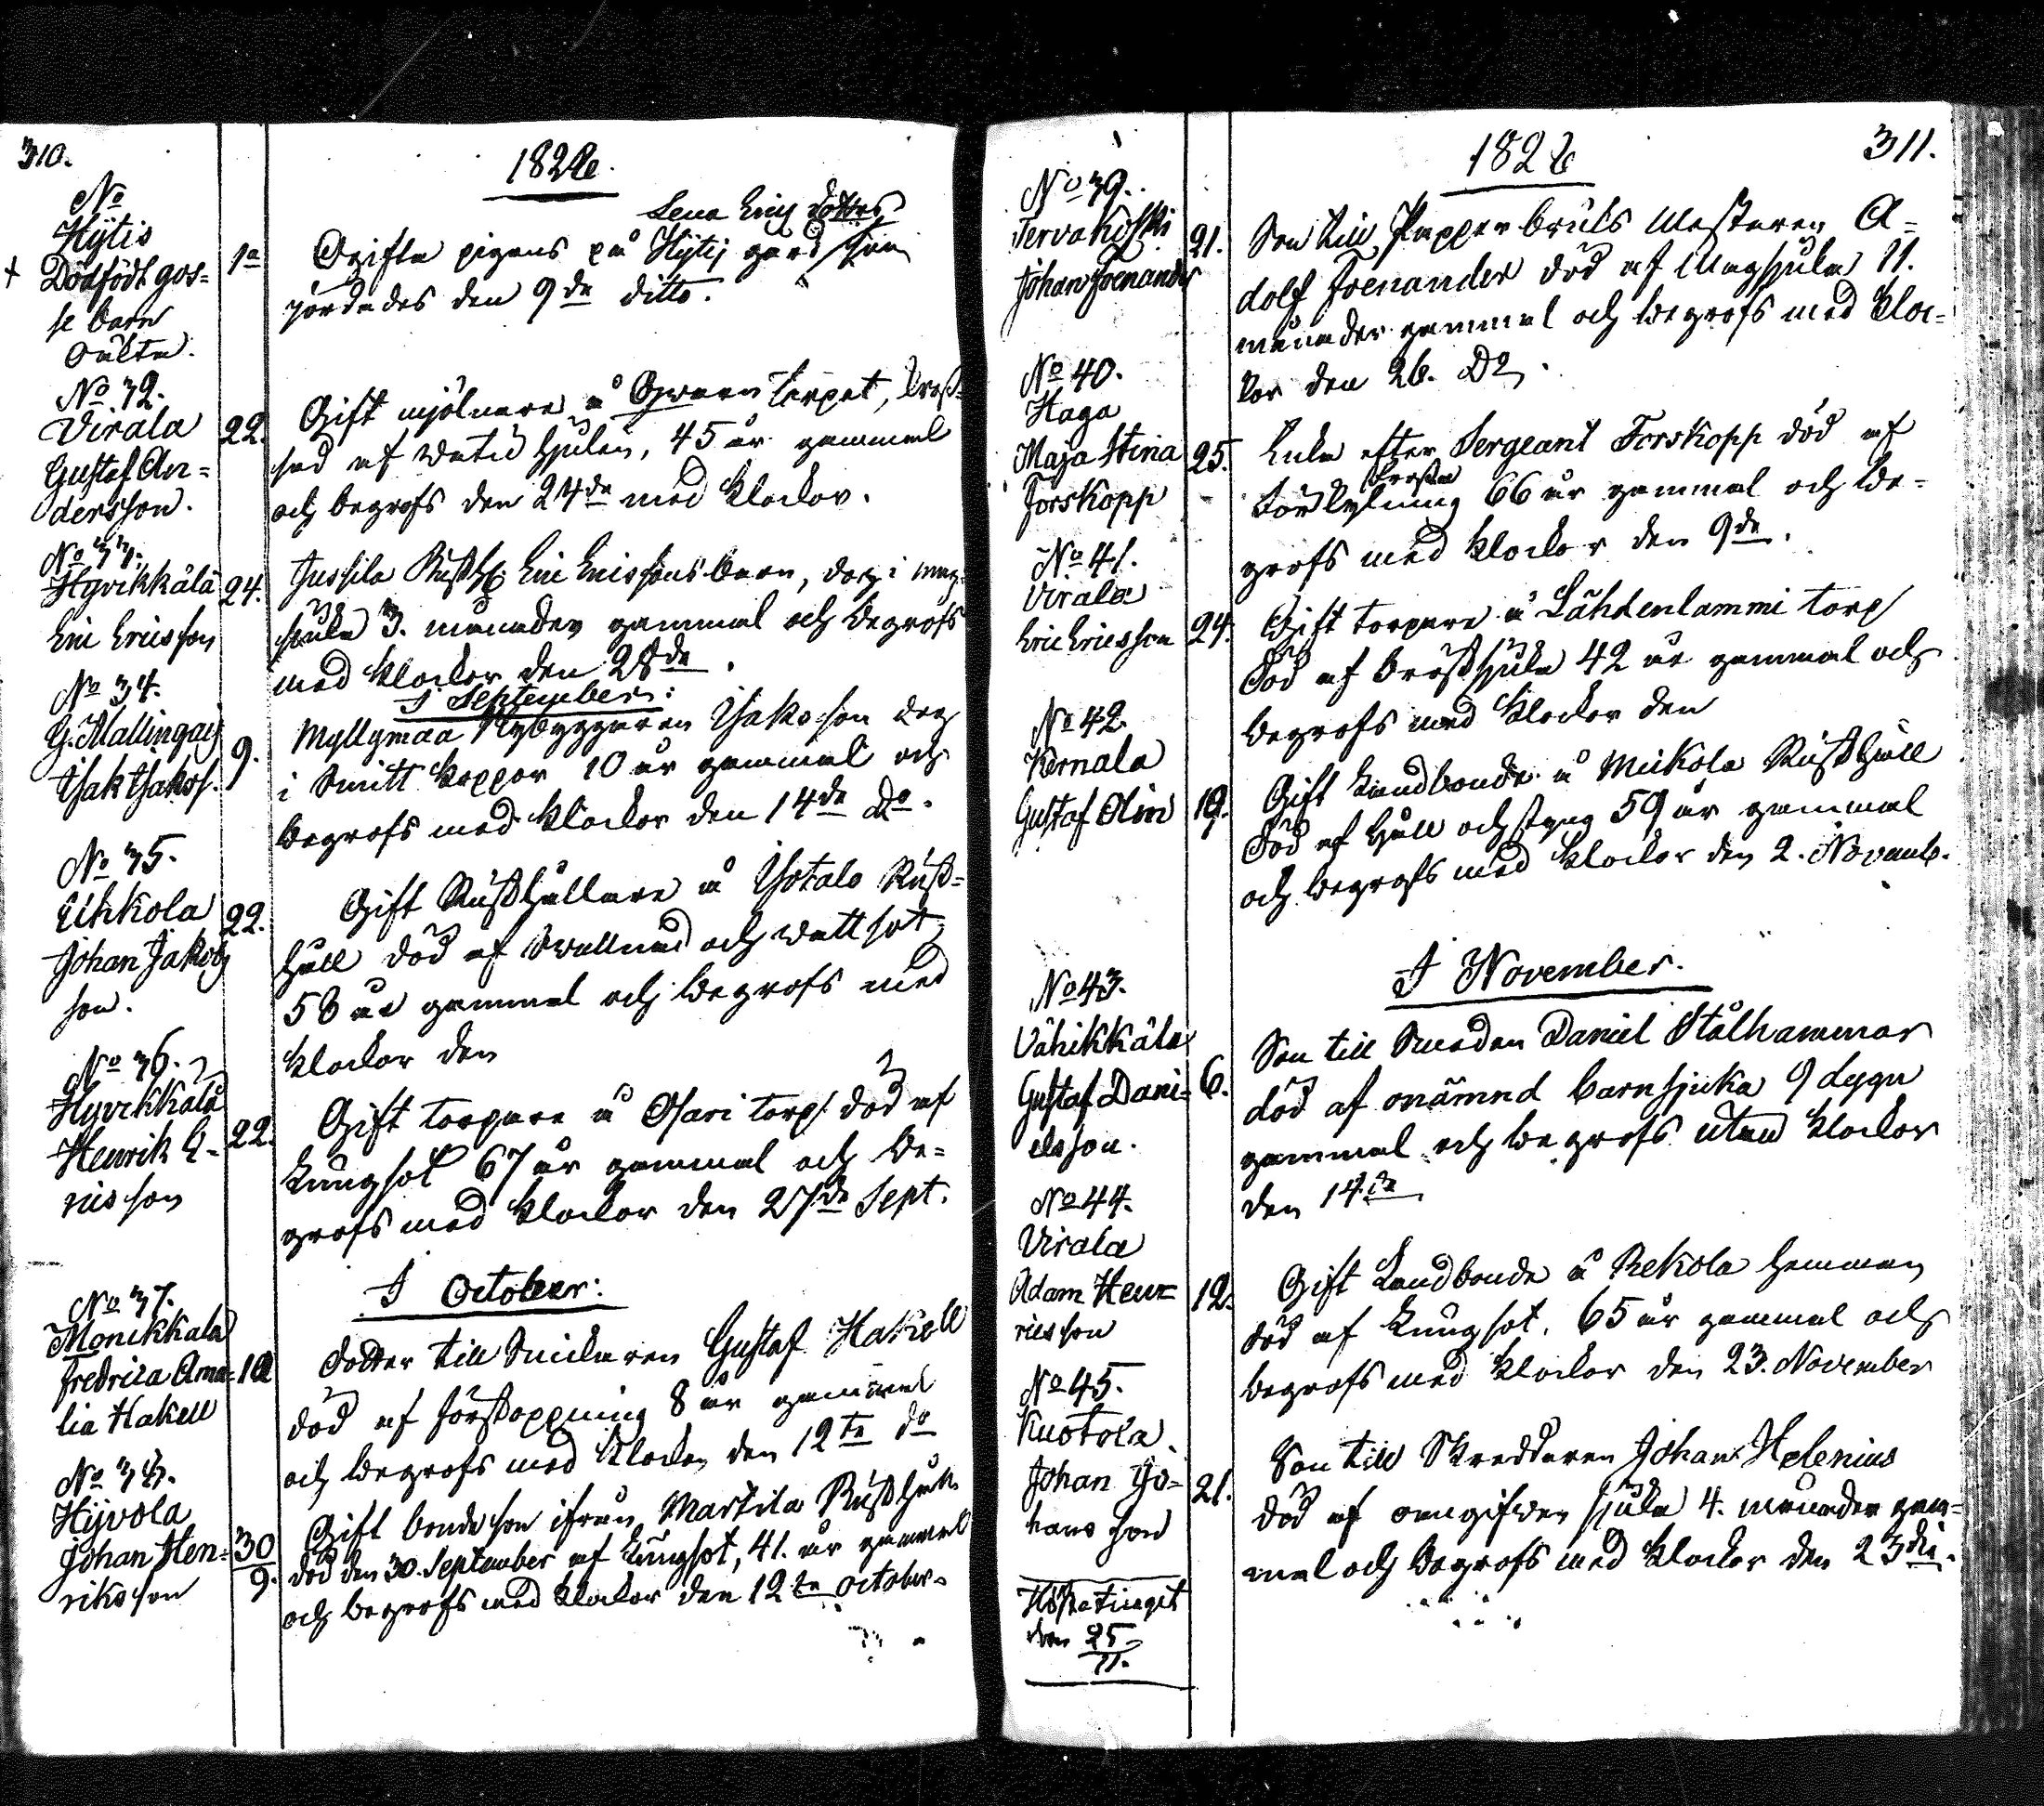 310.
1826.
No
Hytis
+ Dödfödt gos=
se barn
oäkta.
1a
Lena Erics dotters
Ogifta pigans på Hytis gård son
jordades den 9de ditto.
No 32.
Virala
Gustaf An=
dersson.
22.
Gift mjölnare å torpet, kros=
sad af , 45 år gammal
och begrofs den 24de med klockor.
No 33.
Hyvikkälä
Eric Ericsson
24.
Jussila Rusth. Eric Ericssons barn, dog i mag=
sjuka 3. månader gammal och begrofs
med klockor den 28de.
I September:
No 34.
G. Mallinga
Isak Isakss.
9.
Myllymaa Nybyggaren Isaksson dog
i Smitt koppor 10 år gammal och
begrofs med klockor den 14de Do.
No 35.
Uhkola
Johan Jakobs
son.
22.
Gift Rusthållare å Isotalo Rust=
håll död af Swullnad och wattsot
58 år gammal och begrofs med
klockor den
No 36.
Hyvikkälä
Henrik E=
ricsson
22.
Gift torpare å Osari torp död af
Lungsot 67 år gammal och be=
grofs med klockor den 27de Sept.
I October:
No 37.
Monikkala
Fredrica Ama=
lia Hakell
10
Dotter till Snickaren Gustaf Hakell
död af förstoppning 8 år gammal
och begrofs med klockor den 12te do
No 38.
Hyvola
Johan Hen=
riksson
30
9.
Gift bondeson ifrån Marttila Rusthåll
död den 30. September af Lungsot, 41. år gammal
och begrofs med klockor den 12te october.
1826
311.
No 39.
Tervakoski
Johan Foenander
21.
Son till Pappersbruks Mästaren A=
dolf Foenander död af Magsjuka 11.
månader gammal och begrofs med kloc=
kor den 26. Do.
No 40.
Haga
Maja Stina
Forskopp
25.
Enka efter Sergeant Forskopp död af
förkylning 66 år gammal och be=
grofs med klockor den 9de.
No 41.
Virala
Eric Ericsson
24.
Gift torpare å Lähdenlammi torp
död af bröstsjuka 42 år gammal och
begrofs med klockor den
No 42
Kernala
Gustaf Olin
19.
Gift Landbonde å Mickola Rusthåll
död af håll och styng 59 år gammal
och begrofs med klockor den 2. Novemb.
I November.
No 43.
Vähikkälä
Gustaf Dani=
elsson.
6.
Son till Smeden Daniel Stålhammar
död af onämnd barnsjuka 9 dygn
gammal och begrofs utan klockor
den 14.de
No 44.
Virala
Adam Hen=
ricsson
12.
Gift Landbonde å Rekola hemman
död af Lungsot, 65 år gammal och
begrofs med klockor den 23. November
No 45.
Kuotola
Johan Jo=
hansson
21.
Son till Skreddaren Johan Helenius
död af oangifven sjuka 4. månader gam=
mal och begrofs med klockor den 23die.
Höstetinget
den 25
11.